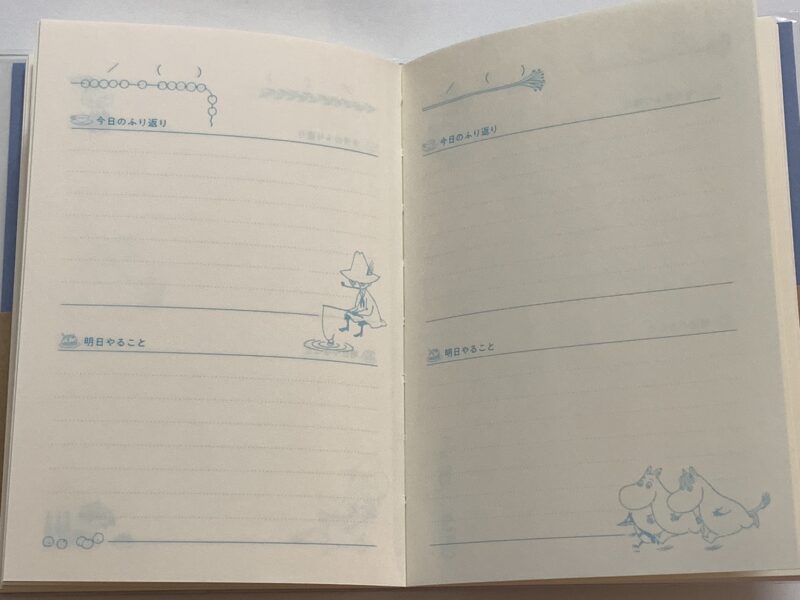 ／ （ ）
今日のふり返り
明日やること
／ （ ）
今日のふり返り
明日やること